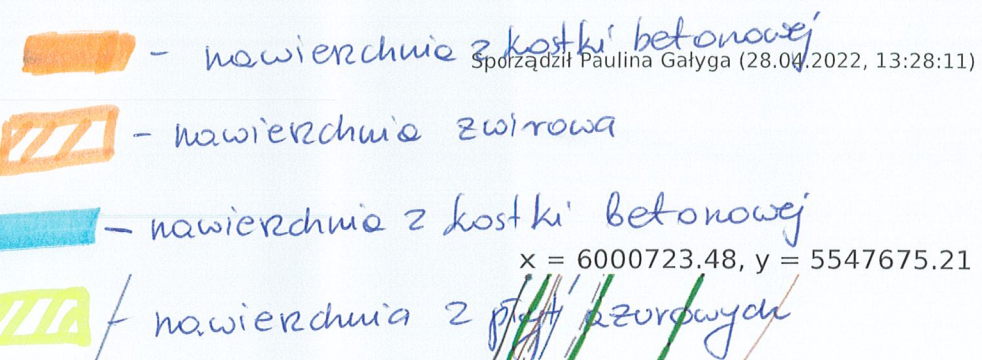 - nawierzchnia z kostki betonowej
Sporządził Paulina Gałyga (28.04.2022, 13:28:11)
- nawierzchnia zwirowa
- nawierzchnia z kostki betonowej
x = 6000723.48, y = 5547675.21
- nawierzchnia z płyt ażurowych